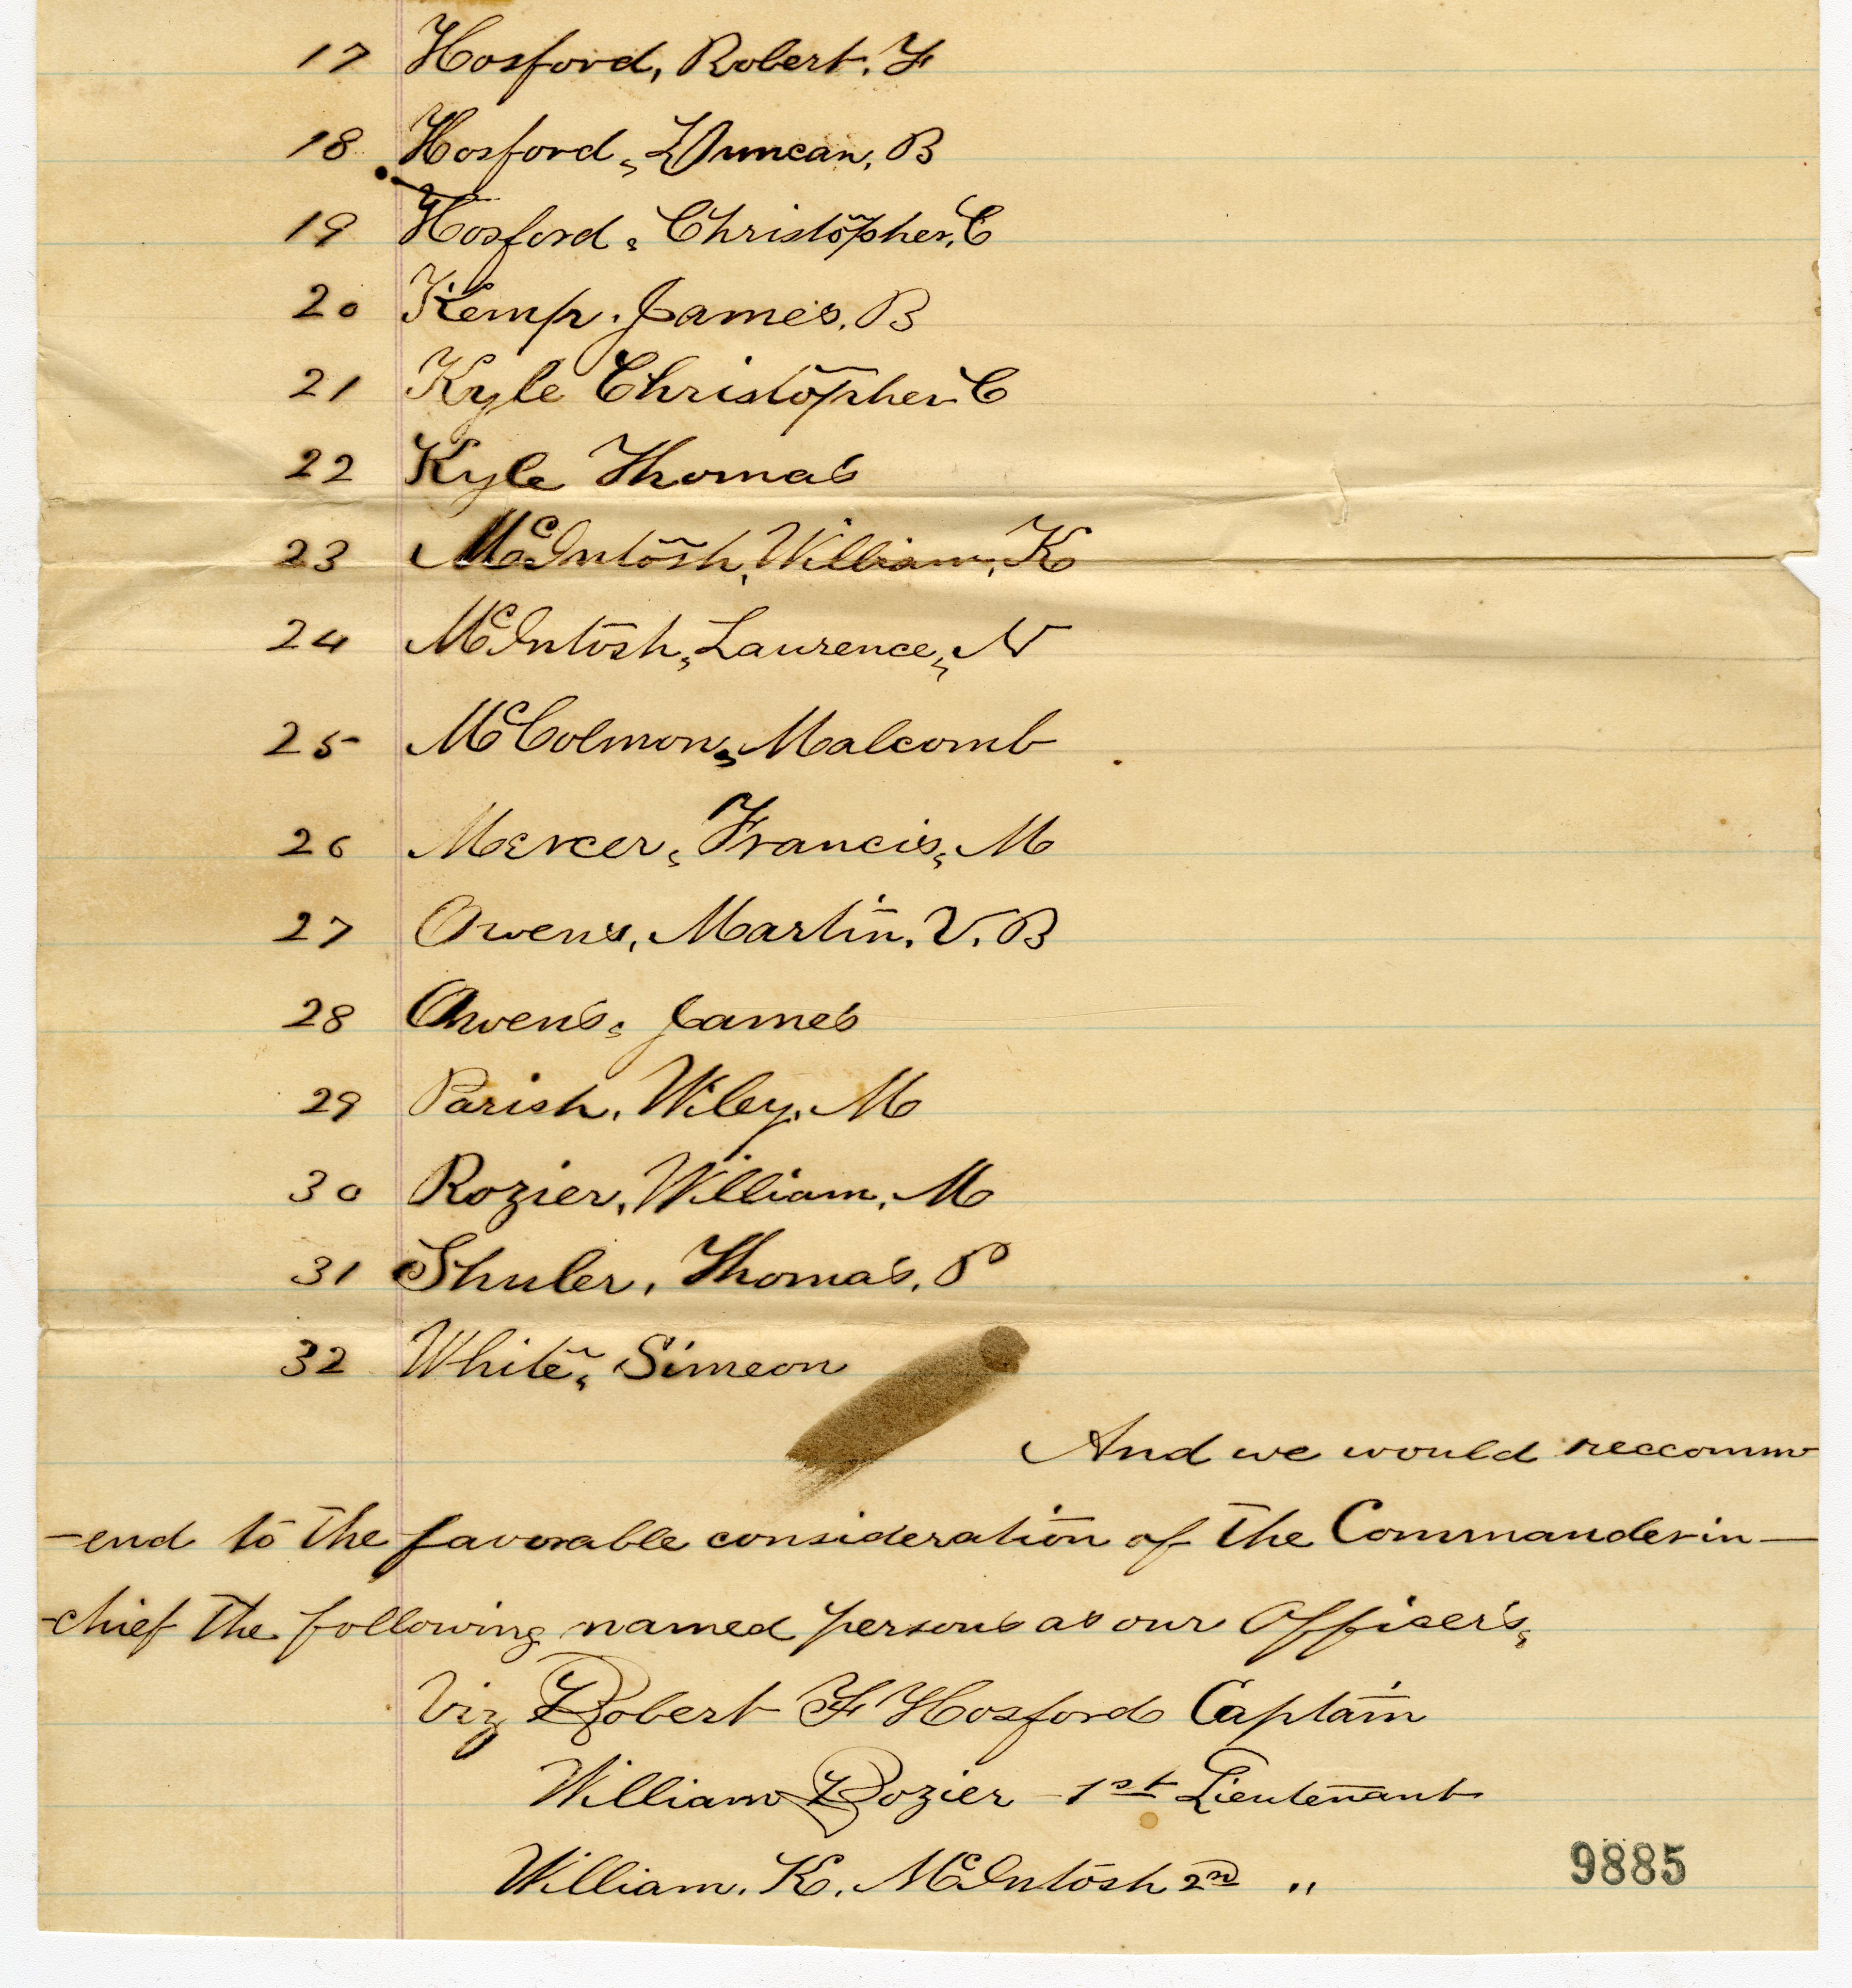 17 Hosford, Robert, F
18 Hosford, Duncan, B
19 Hosford, Christopher, C
20 Kemp. James. B
21 Kyle Christopher C
22 Kyle Thomas
23 McIntosh, William, K
24 McIntosh, Laurence, N
25 McColmon, Malcomb
26 Mercer, Francis, M
27 Owens, Martin. V. B
28 Owens, James
29 Parish, Wiley, M
30 Rozier, William, M
31 Shuler, Thomas, P
32 White, Simeon
And we would reccomm
-end to the favorable consideration of the Commander in-
-chief the following named persons as our Officer's,
Viz Robert F Hosford Captain
William Rozier 1st Lieutenant
William. K. McIntosh 2nd "
9885